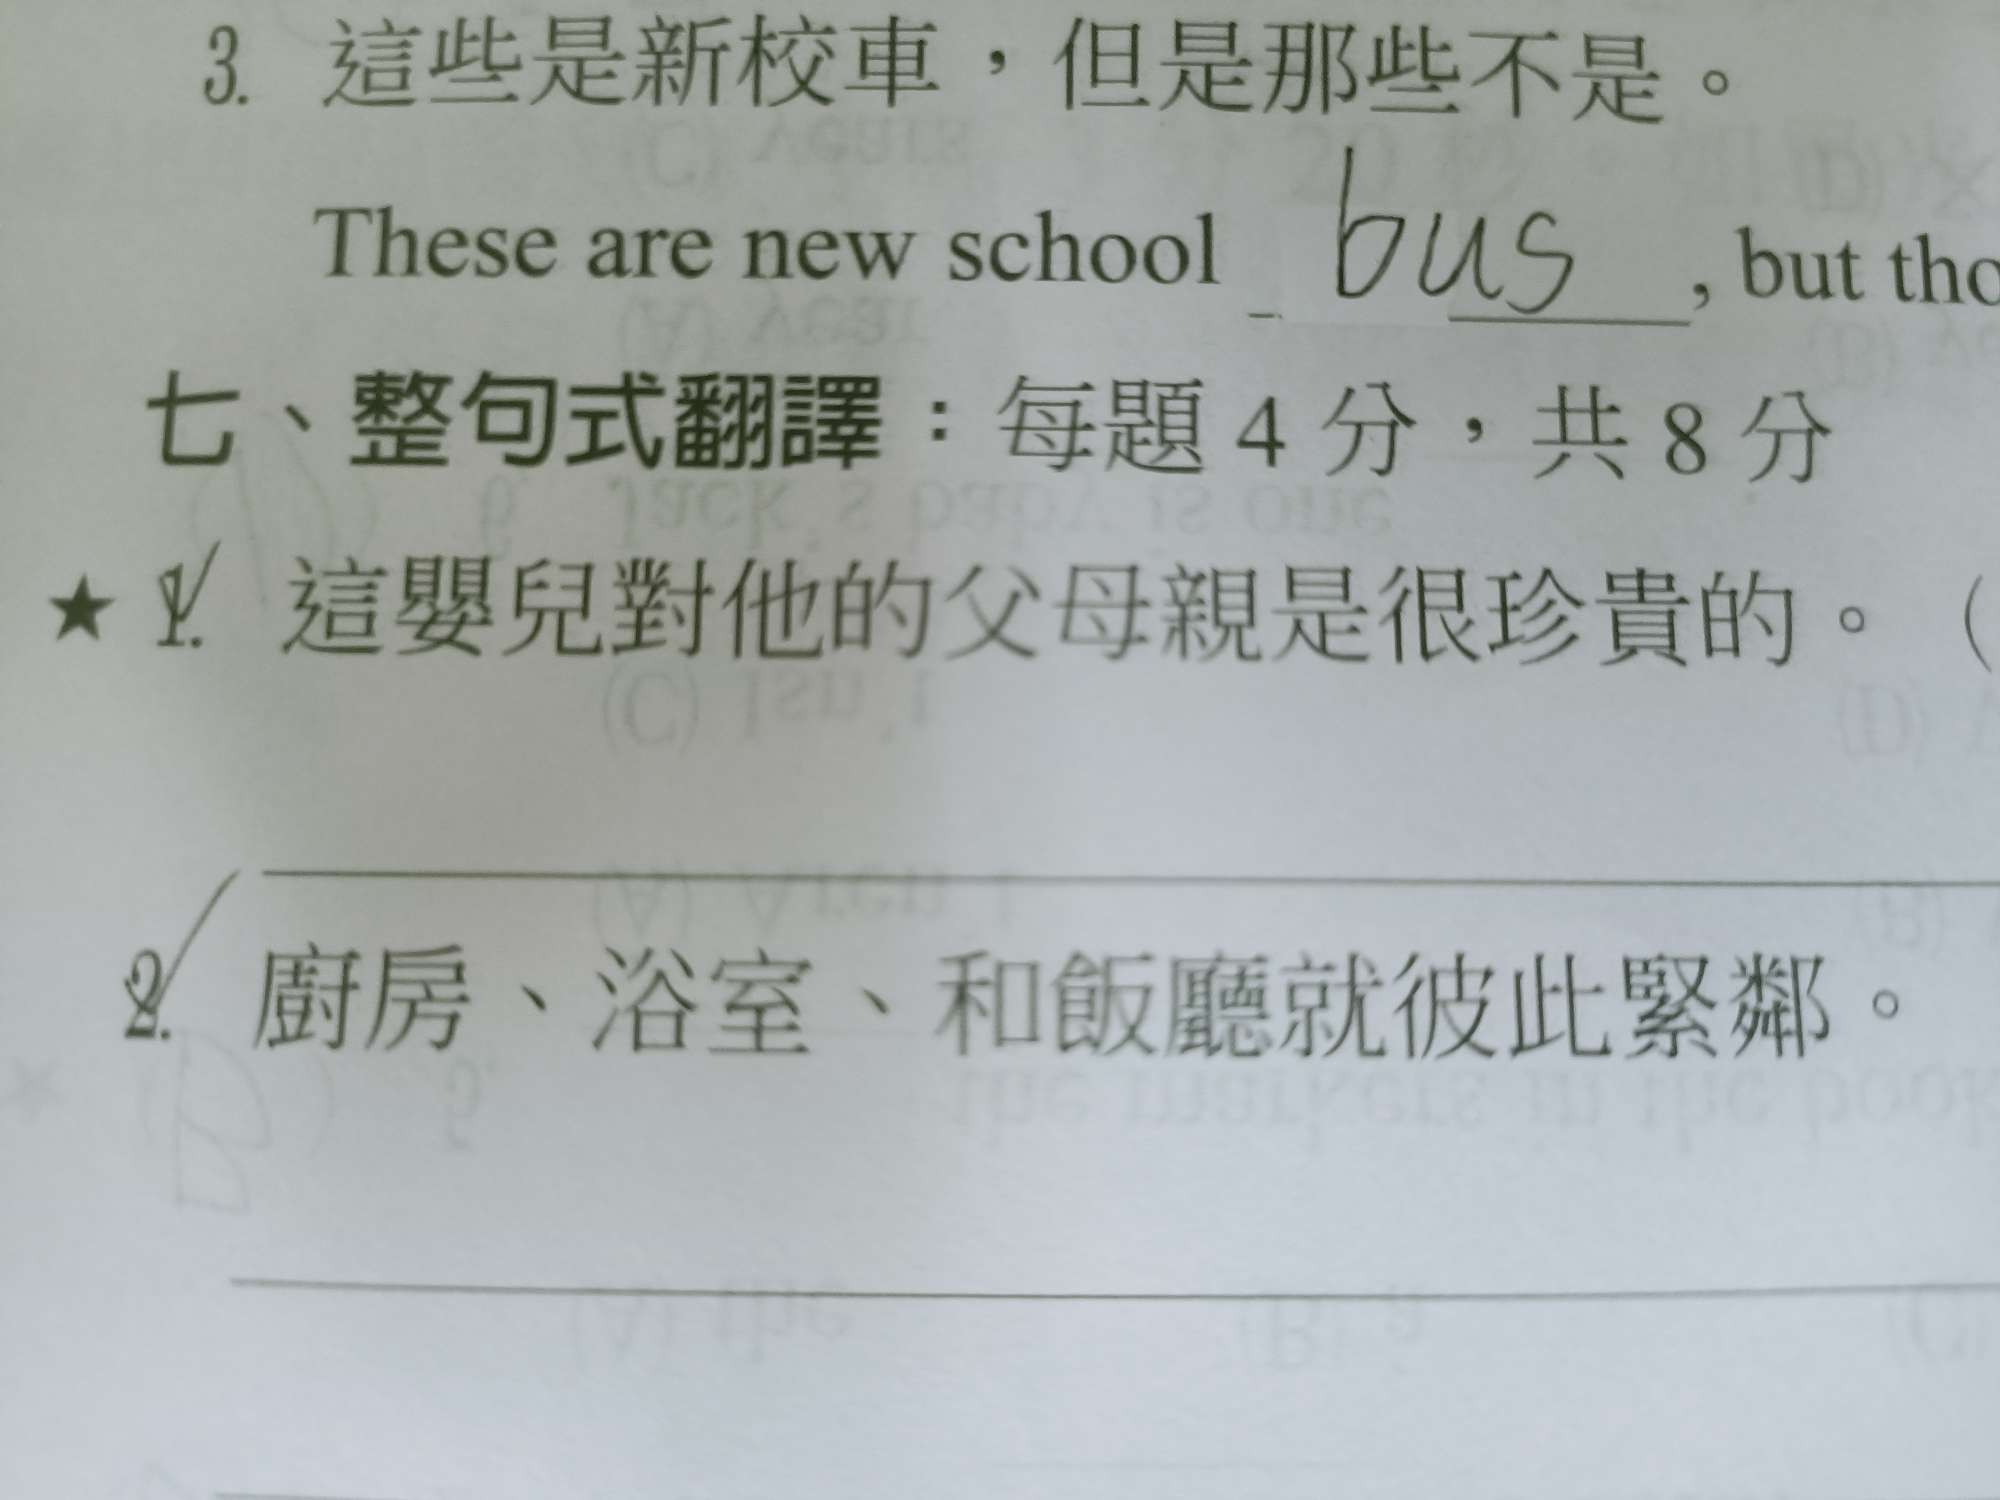 3. 這些是新校車，但是那些不是。
These are new school bus, but tho
七、整句式翻譯：每題 4 分，共 8 分
★ 1. 這嬰兒對他的父母親是很珍貴的。（
2. 廚房、浴室、和飯廳就彼此緊鄰。